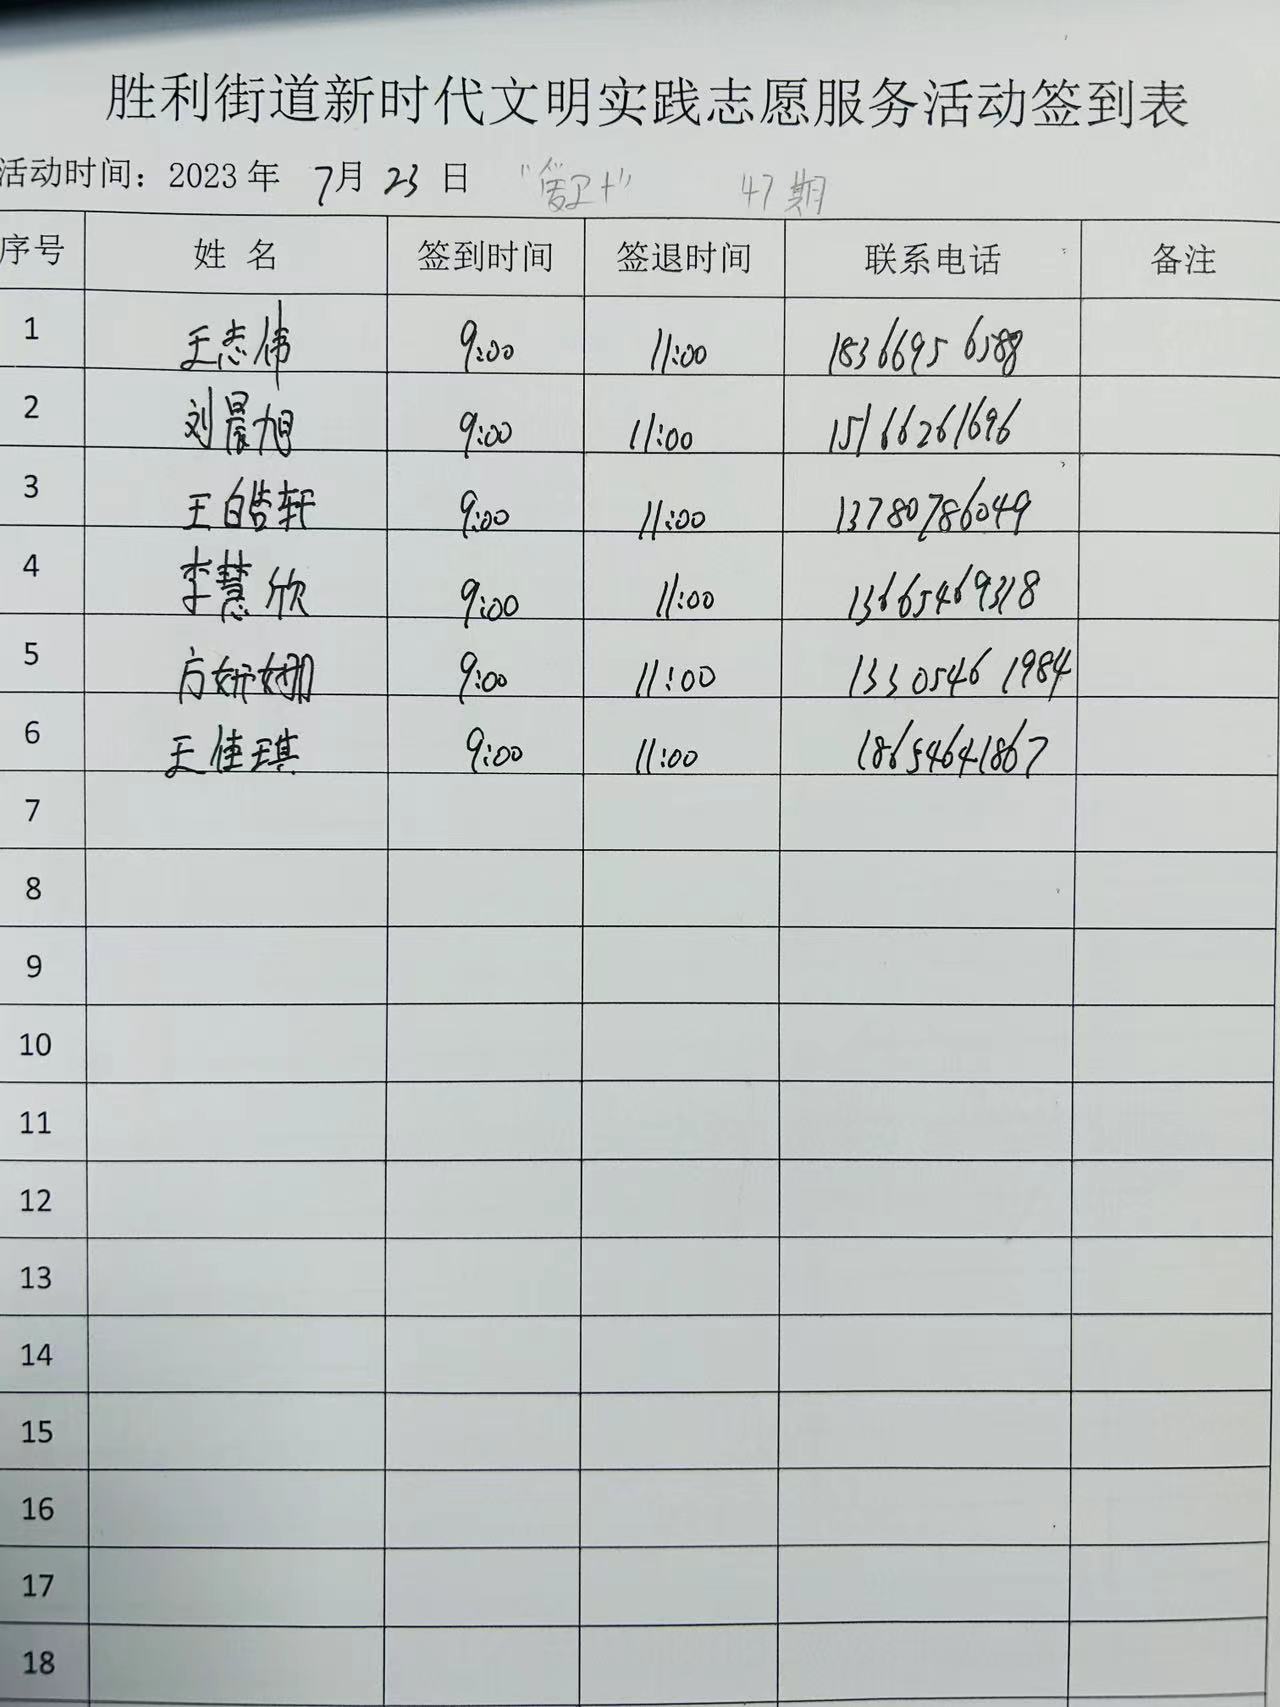 胜利街道新时代文明实践志愿服务活动签到表
活动时间：2023 年 7月 23 日 47期
序号 姓 名 签到时间 签退时间 联系电话 备注
1 王志伟 9:00 11:00 18366956588
2 刘晨旭 9:00 11:00 15166261696
3 王皓轩 9:00 11:00 13780786049
4 李慧欣 9:00 11:00 13665469318
5 方妍娜 9:00 11:00 13305461984
6 王佳琪 9:00 11:00 18654641867
7
8
9
10
11
12
13
14
15
16
17
18